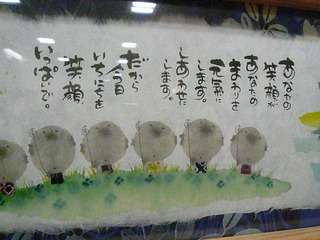 あなたの
笑顔が
あなたの
まわりを
元気に
します。
しあわせに
します。
だから
今日
いちにちを
笑顔
いっぱいで。